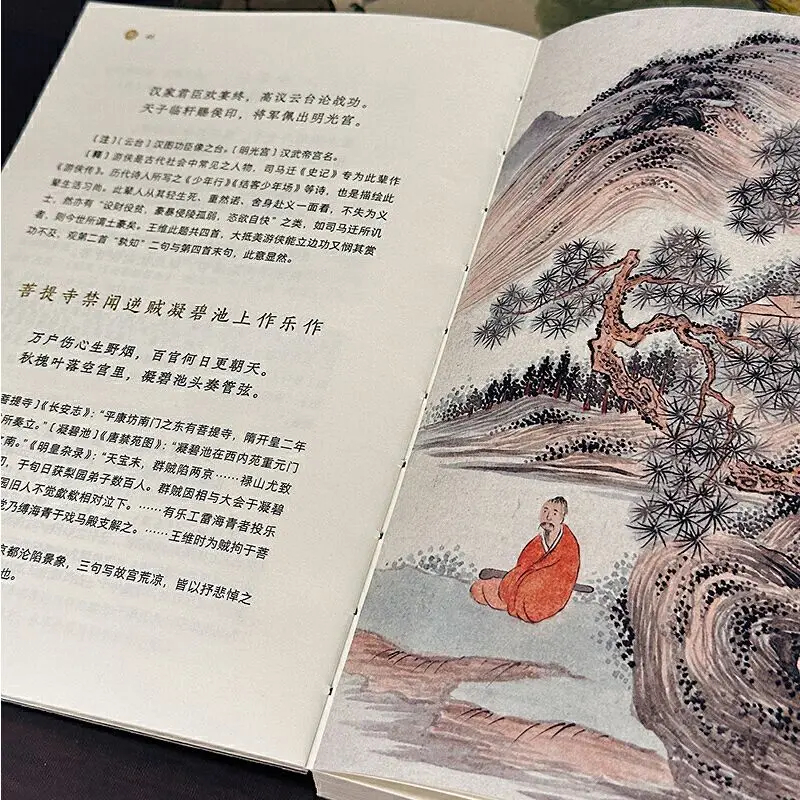 汉家君臣欢宴终，高议云台论战功。
天子临轩赐侯印，将军佩出明光宫。
〔注〕〔云台〕汉图功臣像之台。〔明光宫〕汉武帝宫名。
〔释〕游侠是古代社会中常见之人物，司马迁《史记》专为此辈作
《游侠传》。历代诗人所写之《少年行》《结客少年场》等诗，也是描绘此
辈生活习尚。此辈人从其轻生死、重然诺、舍身赴义一面看，不失为义
士，然亦有“设财役贫，豪暴侵陵孤弱，恣欲自快”之类，如司马迁所讥
者，则今世所谓土豪矣。王维此题共四首，大抵美游侠能立边功又悯其赏
功不及，观第二首“孰知”二句与第四首末句，此意显然。
菩提寺禁闻逆贼凝碧池上作乐作
万户伤心生野烟，百官何日更朝天。
秋槐叶落空宫里，凝碧池头奏管弦。
菩提寺〕《长安志》：“平康坊南门之东有菩提寺，隋开皇二年
所奏立。”〔凝碧池〕《唐禁苑图》：“凝碧池在西内苑重元门
南。”《明皇杂录》：“天宝末，群贼陷两京……禄山尤致
，于旬日获梨园弟子数百人。群贼因相与大会于凝碧
园旧人不觉歔欷相对泣下。……有乐工雷海青者投乐
党乃缚海青于戏马殿支解之。……王维时为贼拘于菩
京都沦陷景象，三句写故宫荒凉，皆以抒悲悼之
也。